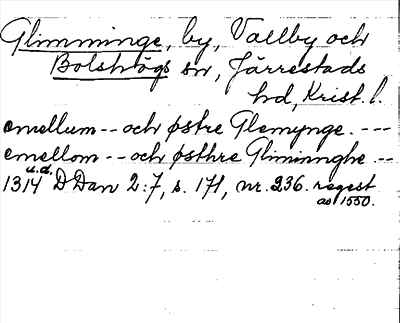 Glimminge, by, Vallby och
Bolshögs sn, Järrestads
hd, Krist. l.
emellum -- och østre Glemynge. ---
emellom -- och østhre Gliminnghe --
u.d.
1314 DDan 2:7, s. 171, nr. 236. regest
av 1550.